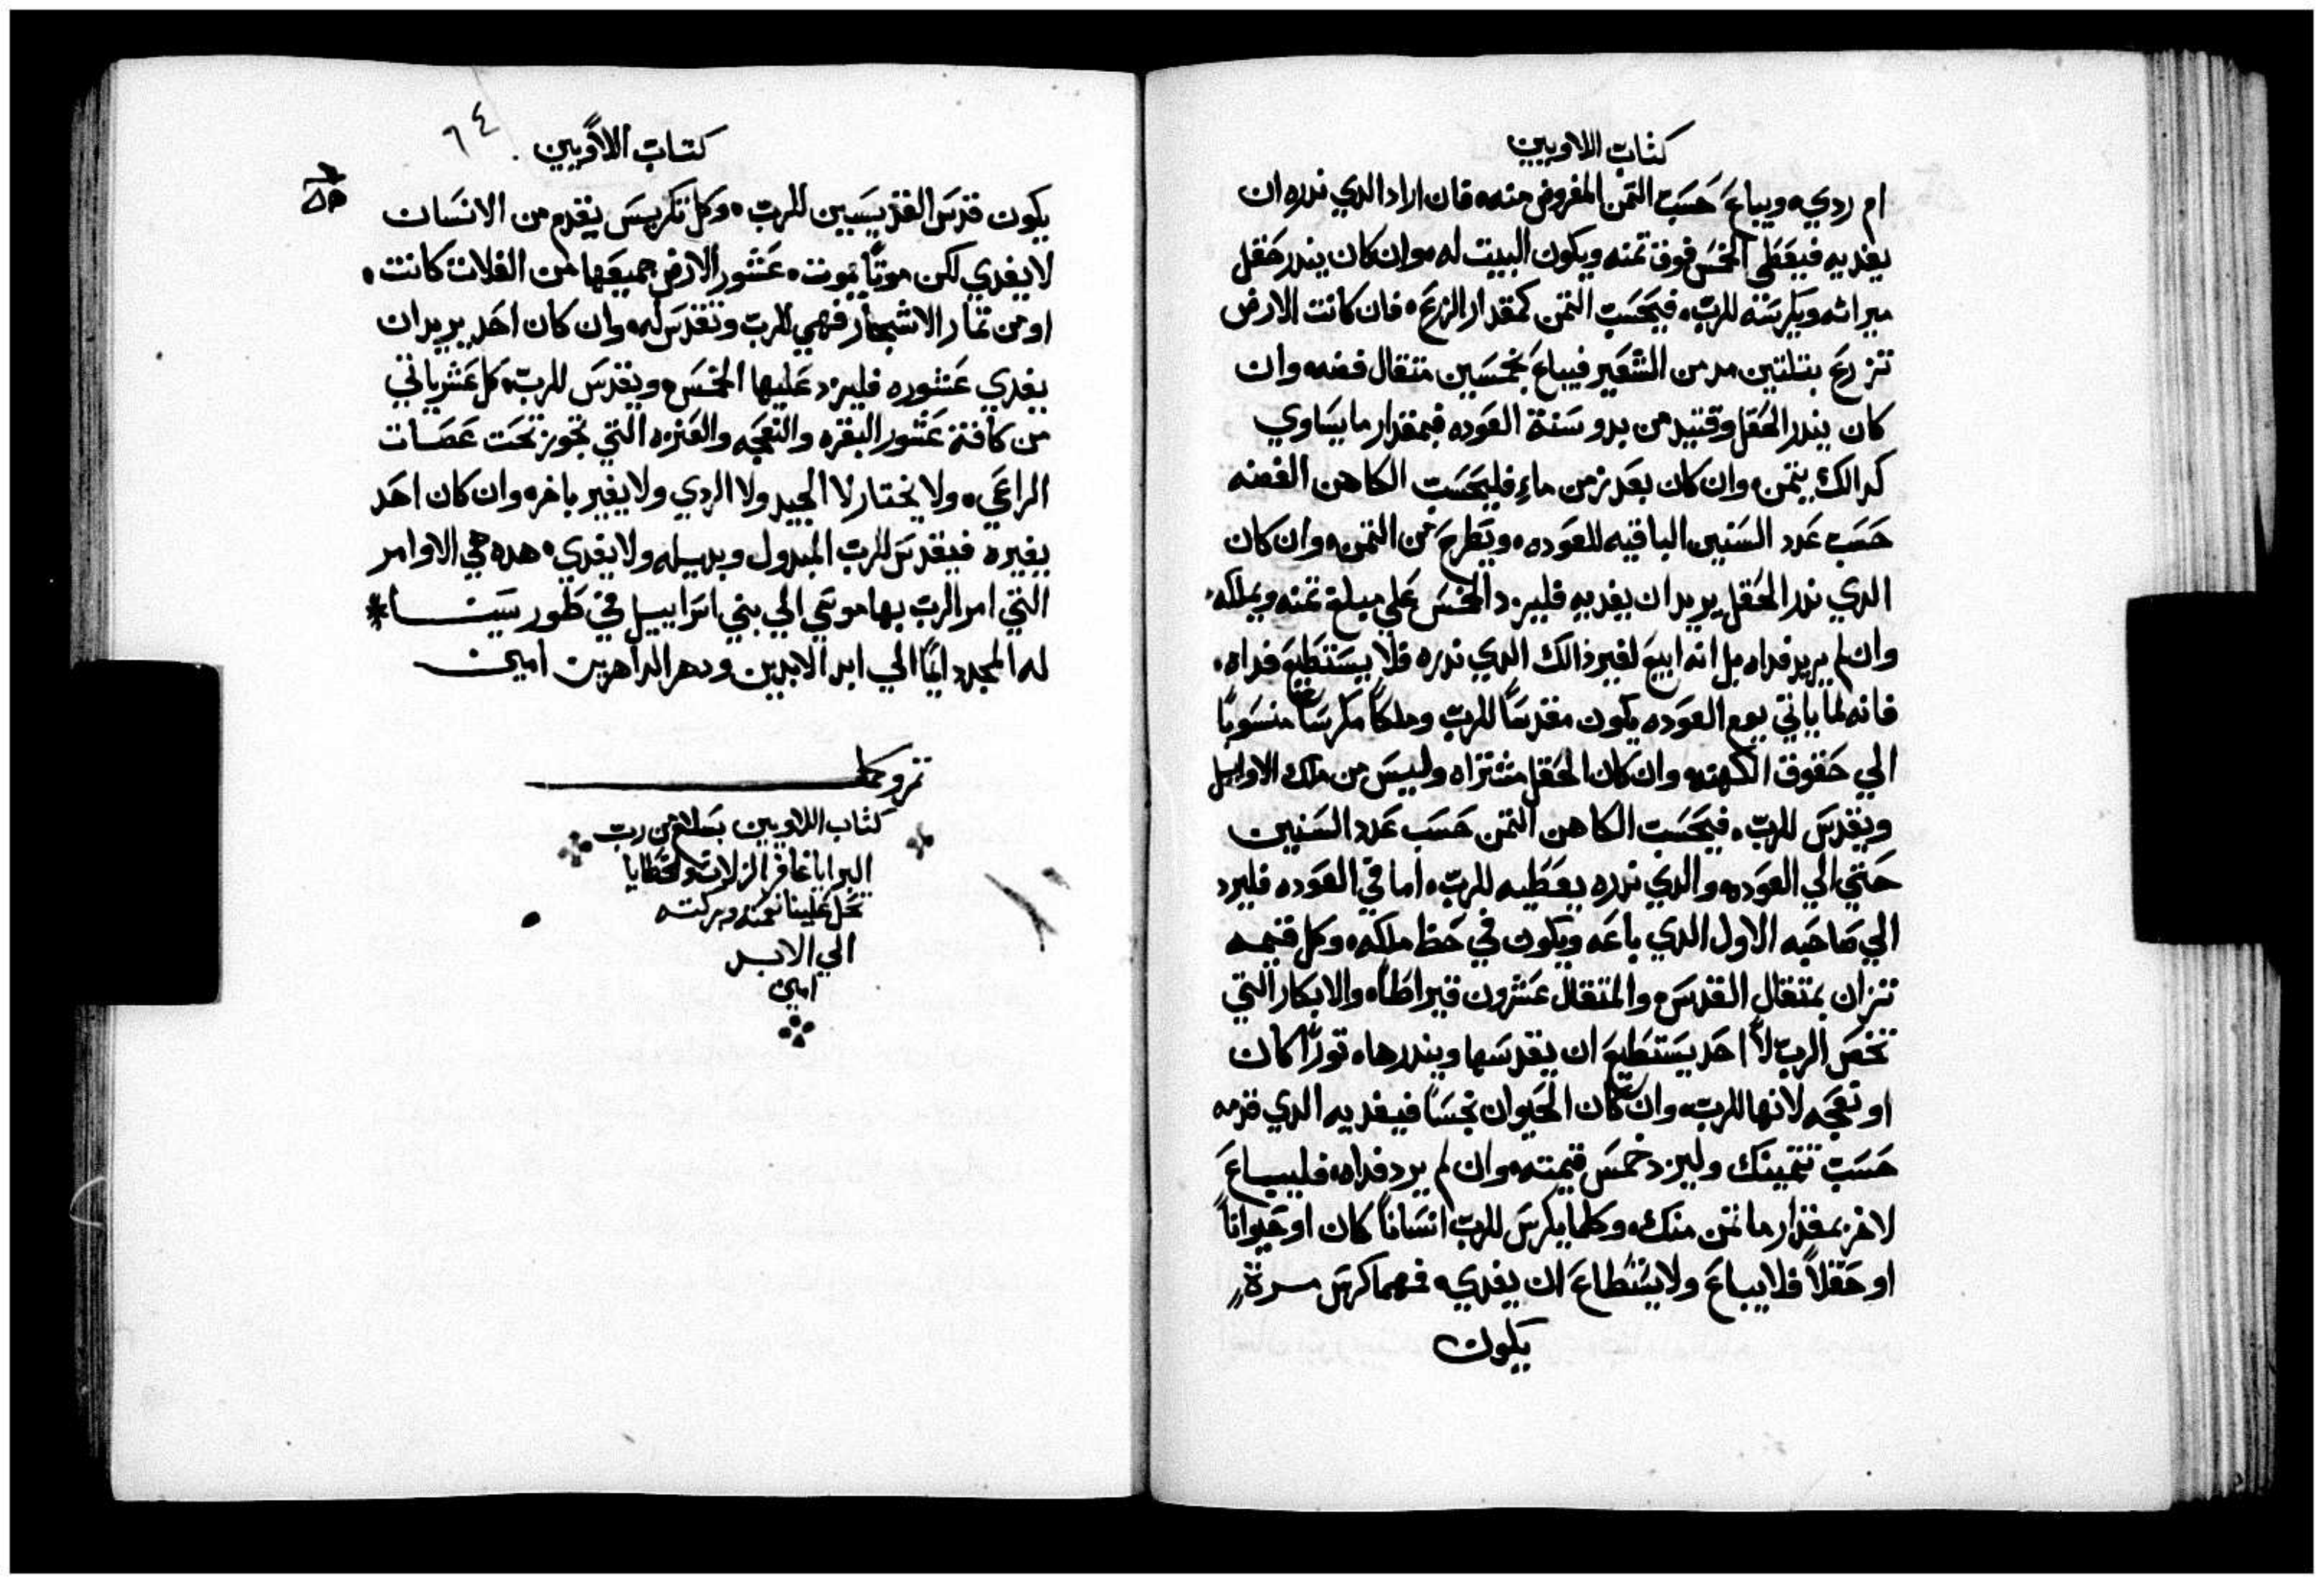 كتاب اللاويين
ام ردي ويباع حسب التمن المفروض منه فان اراد الدي ندره ان
يفديه فيعطي الخمس فوق تمنه ويكون البيت له وان كان يندر حقل
ميراثه ويكرسنه للرب فيحسب التمن كمقدار الزرع فان كانت الارض
تزرع بتلتين مد من الشعير فيباع بخمسين متقال فضه وان
كان يندر الحقل وقتيد من بدو سنة العوده فبمقدار ما يساوي
كدالك يتمن وان كان بعد زمن ماء فليحسب الكاهن الفضه
حسب عدد السنين الباقيه للعوده ويطرح من التمن وان كان
الدي ندر الحقل يريد ان يفديه فليزد الخمس علي مبلغ تمنه ويملكه
وان لم يريد فداه بل انه ابيع لغير ذالك الدي ندره فلا يستطيع فداه
فانه لما ياتي يوم العوده يكون مقدسا للرب وملكا مكرسا منسوبا
الي حقوق الكهنه وان كان الحقل مشتراه وليس من ملك الاوايل
ويقدس للرب فيحسب الكاهن التمن حسب عدد السنين
حتي الي العوده والدي ندره يعطيه للرب اما في العوده فليرد
الي صاحبه الاول الدي باعه ويكون في حظ ملكه وكل قيمه
تزان بمتقال القدس والمتقال عشرون قيراطا والابكار التي
تخص الرب لا احد يستطيع ان يقدسها ويندرها توراً كان
او نعجه لانها للرب وان كان الحيوان نجسا فيفديه الدي قدمه
حسب تتمينك وليزد خمس قيمته وان لم يرد فداه فليباع
لاخر بمقدار ما تمن منك وكلما يكرس للرب انسانا كان او حيوانا
او حقلا فلا يباع ولا يستطاع ان يفدي فمهما كرس مرة
يكون
كتاب اللاويين
٦٤
يكون قدس القديسين للرب وكل تكريس يقدم من الانسان
لا يفدي لكن موتا يموت عشور الارض جميعها من الغلات كانت
او من تمار الاشجار فهي للرب وتقدس له وان كان احد يريد ان
يفدي عشوره فليزد عليها الخمس ويقدس للرب كل عشر ياتي
من كافة عشور البقره والنعجه والعنزه التي تجوز تحت عصات
الراعي ولا يختار لا الجيد ولا الردي ولا يغير باخر وان كان احد
يغيره فيقدس للرب المبدول وبديله ولا يفدي هده هي الاوامر
التي امر الرب بها موسي الي بني اسراييل في طور سينا
له المجد دايما الي ابد الابدين ودهر الداهرين امين
تم وكمل
كتاب اللاويين بسلام من رب
البرايا غافر الزلات والخطايا
تحل علينا نعمته وبركته
الي الابد
امين